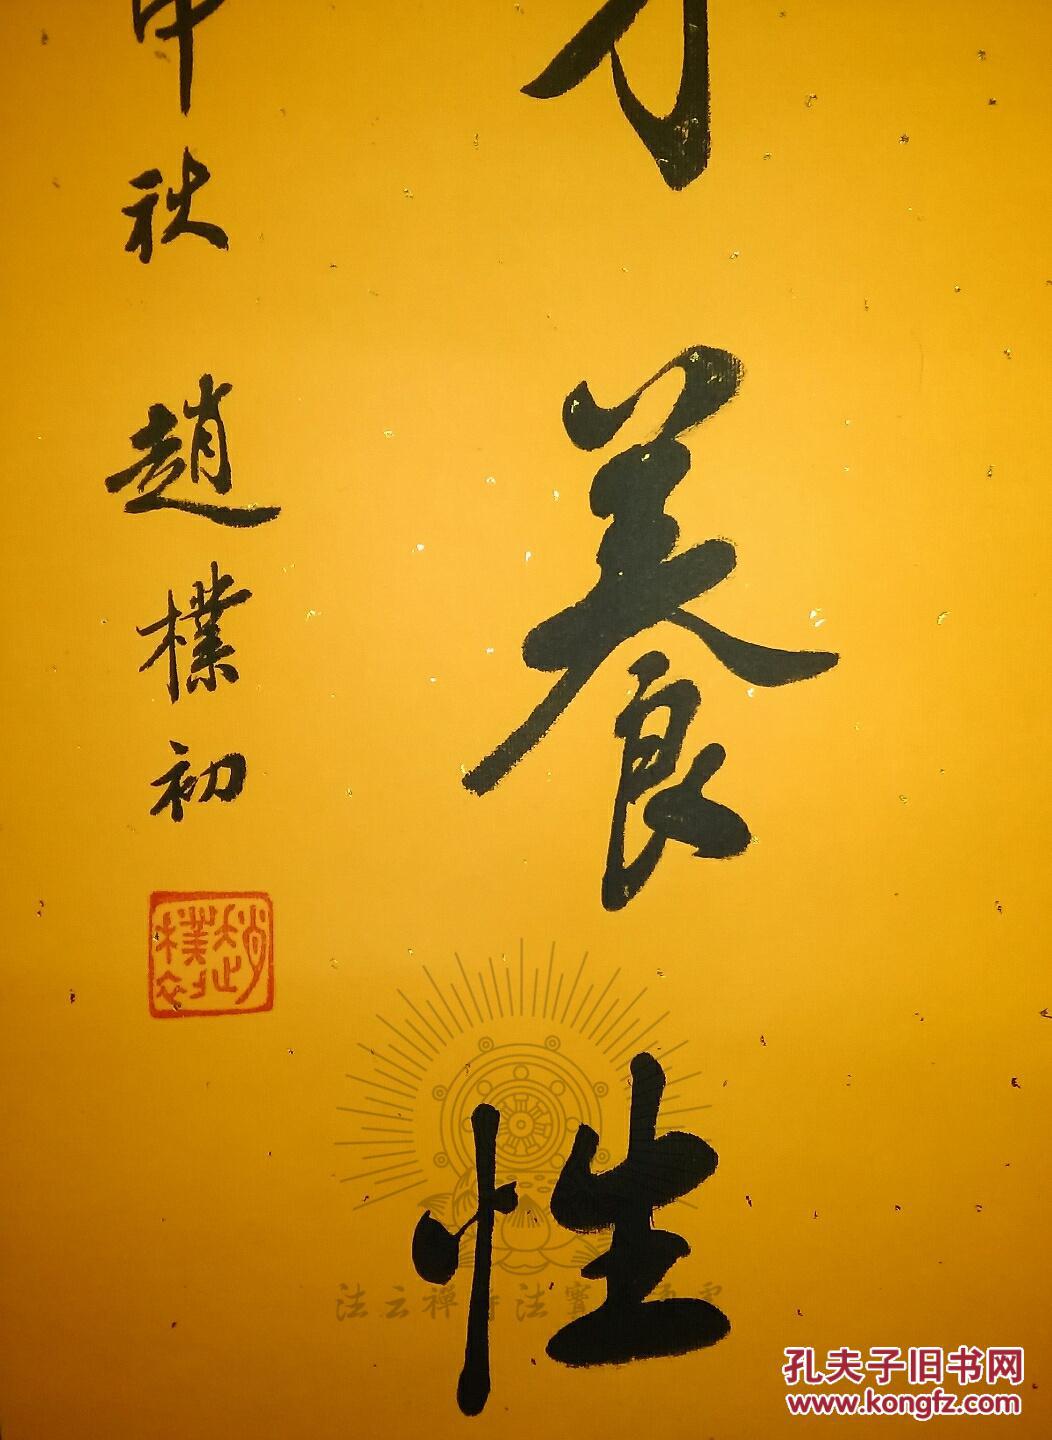 養性
申秋 趙樸初
趙樸初
法云禪寺法寶
孔夫子旧书网
www.kongfz.com